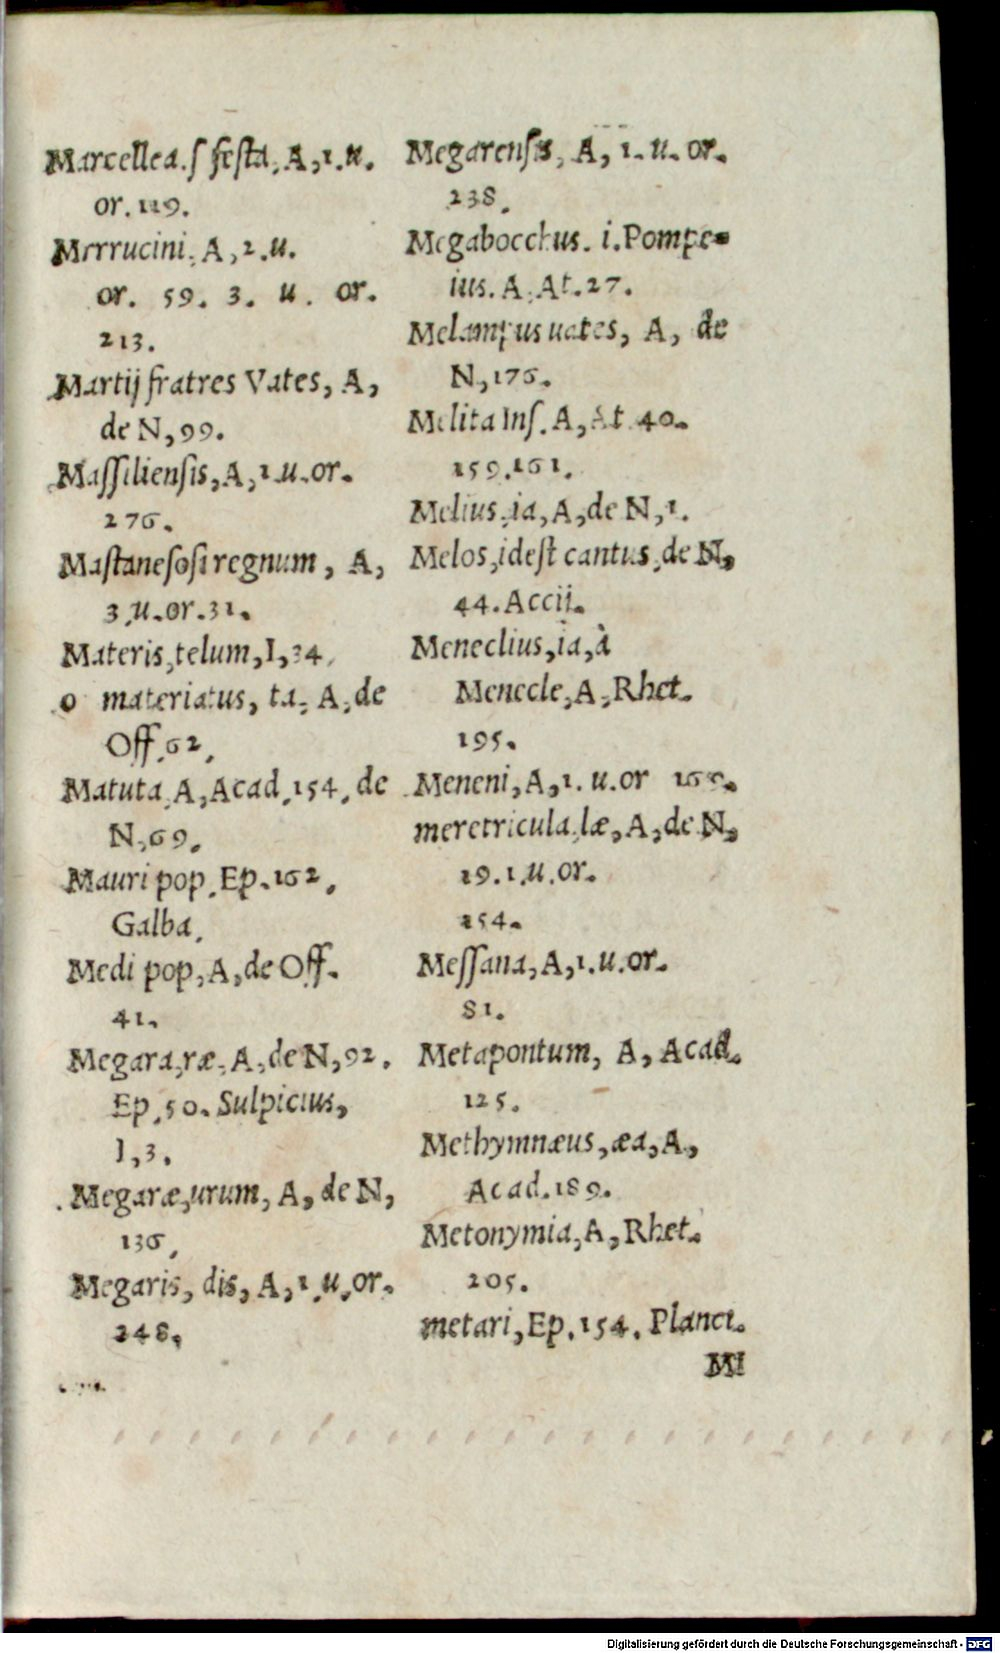 Marcellea.ſ feſta, A, 1. u.
or. 119.
Marrucini, A, 2. u.
or. 59. 3. u. or.
213.
Martij fratres Vates, A,
de N, 99.
Maſſilienſis, A, 1. u. or.
276.
Maſtaneſoſi regnum, A,
3. u. or. 31.
Materis, telum, I, 34.
o materiatus, ta, A, de
Off. 62.
Matuta, A, Acad. 154. de
N, 69.
Mauri pop. Ep. 162.
Galba.
Medi pop, A, de Off.
41.
Megara, ræ, A, de N, 92.
Ep. 50. Sulpicius,
I, 3.
. Megaræ, urum, A, de N,
136.
Megaris, dis, A, 1. u. or.
248.
Megarenſis, A, 1. u. or.
238.
Megabocchus. i. Pompe=
ius. A, At. 27.
Melampus uates, A, de
N, 176.
Melita Inſ. A, At. 40.
159. 161.
Melius, ia, A, de N, 1.
Melos, ideſt cantus, de N,
44. Accij.
Meneclius, ia, à
Menecle, A, Rhet.
195.
Meneni, A, 1. u. or
meretricula, læ, A, de N,
19. 1. u. or.
154.
Meſſana, A, 1. u. or.
81.
Metapontum, A, Acad.
125.
Methymnæus, æa, A,
Acad. 189.
Metonymia, A, Rhet.
205.
metari, Ep. 154. Planci.
MI
Digitalisierung gefördert durch die Deutsche Forschungsgemeinschaft - DFG